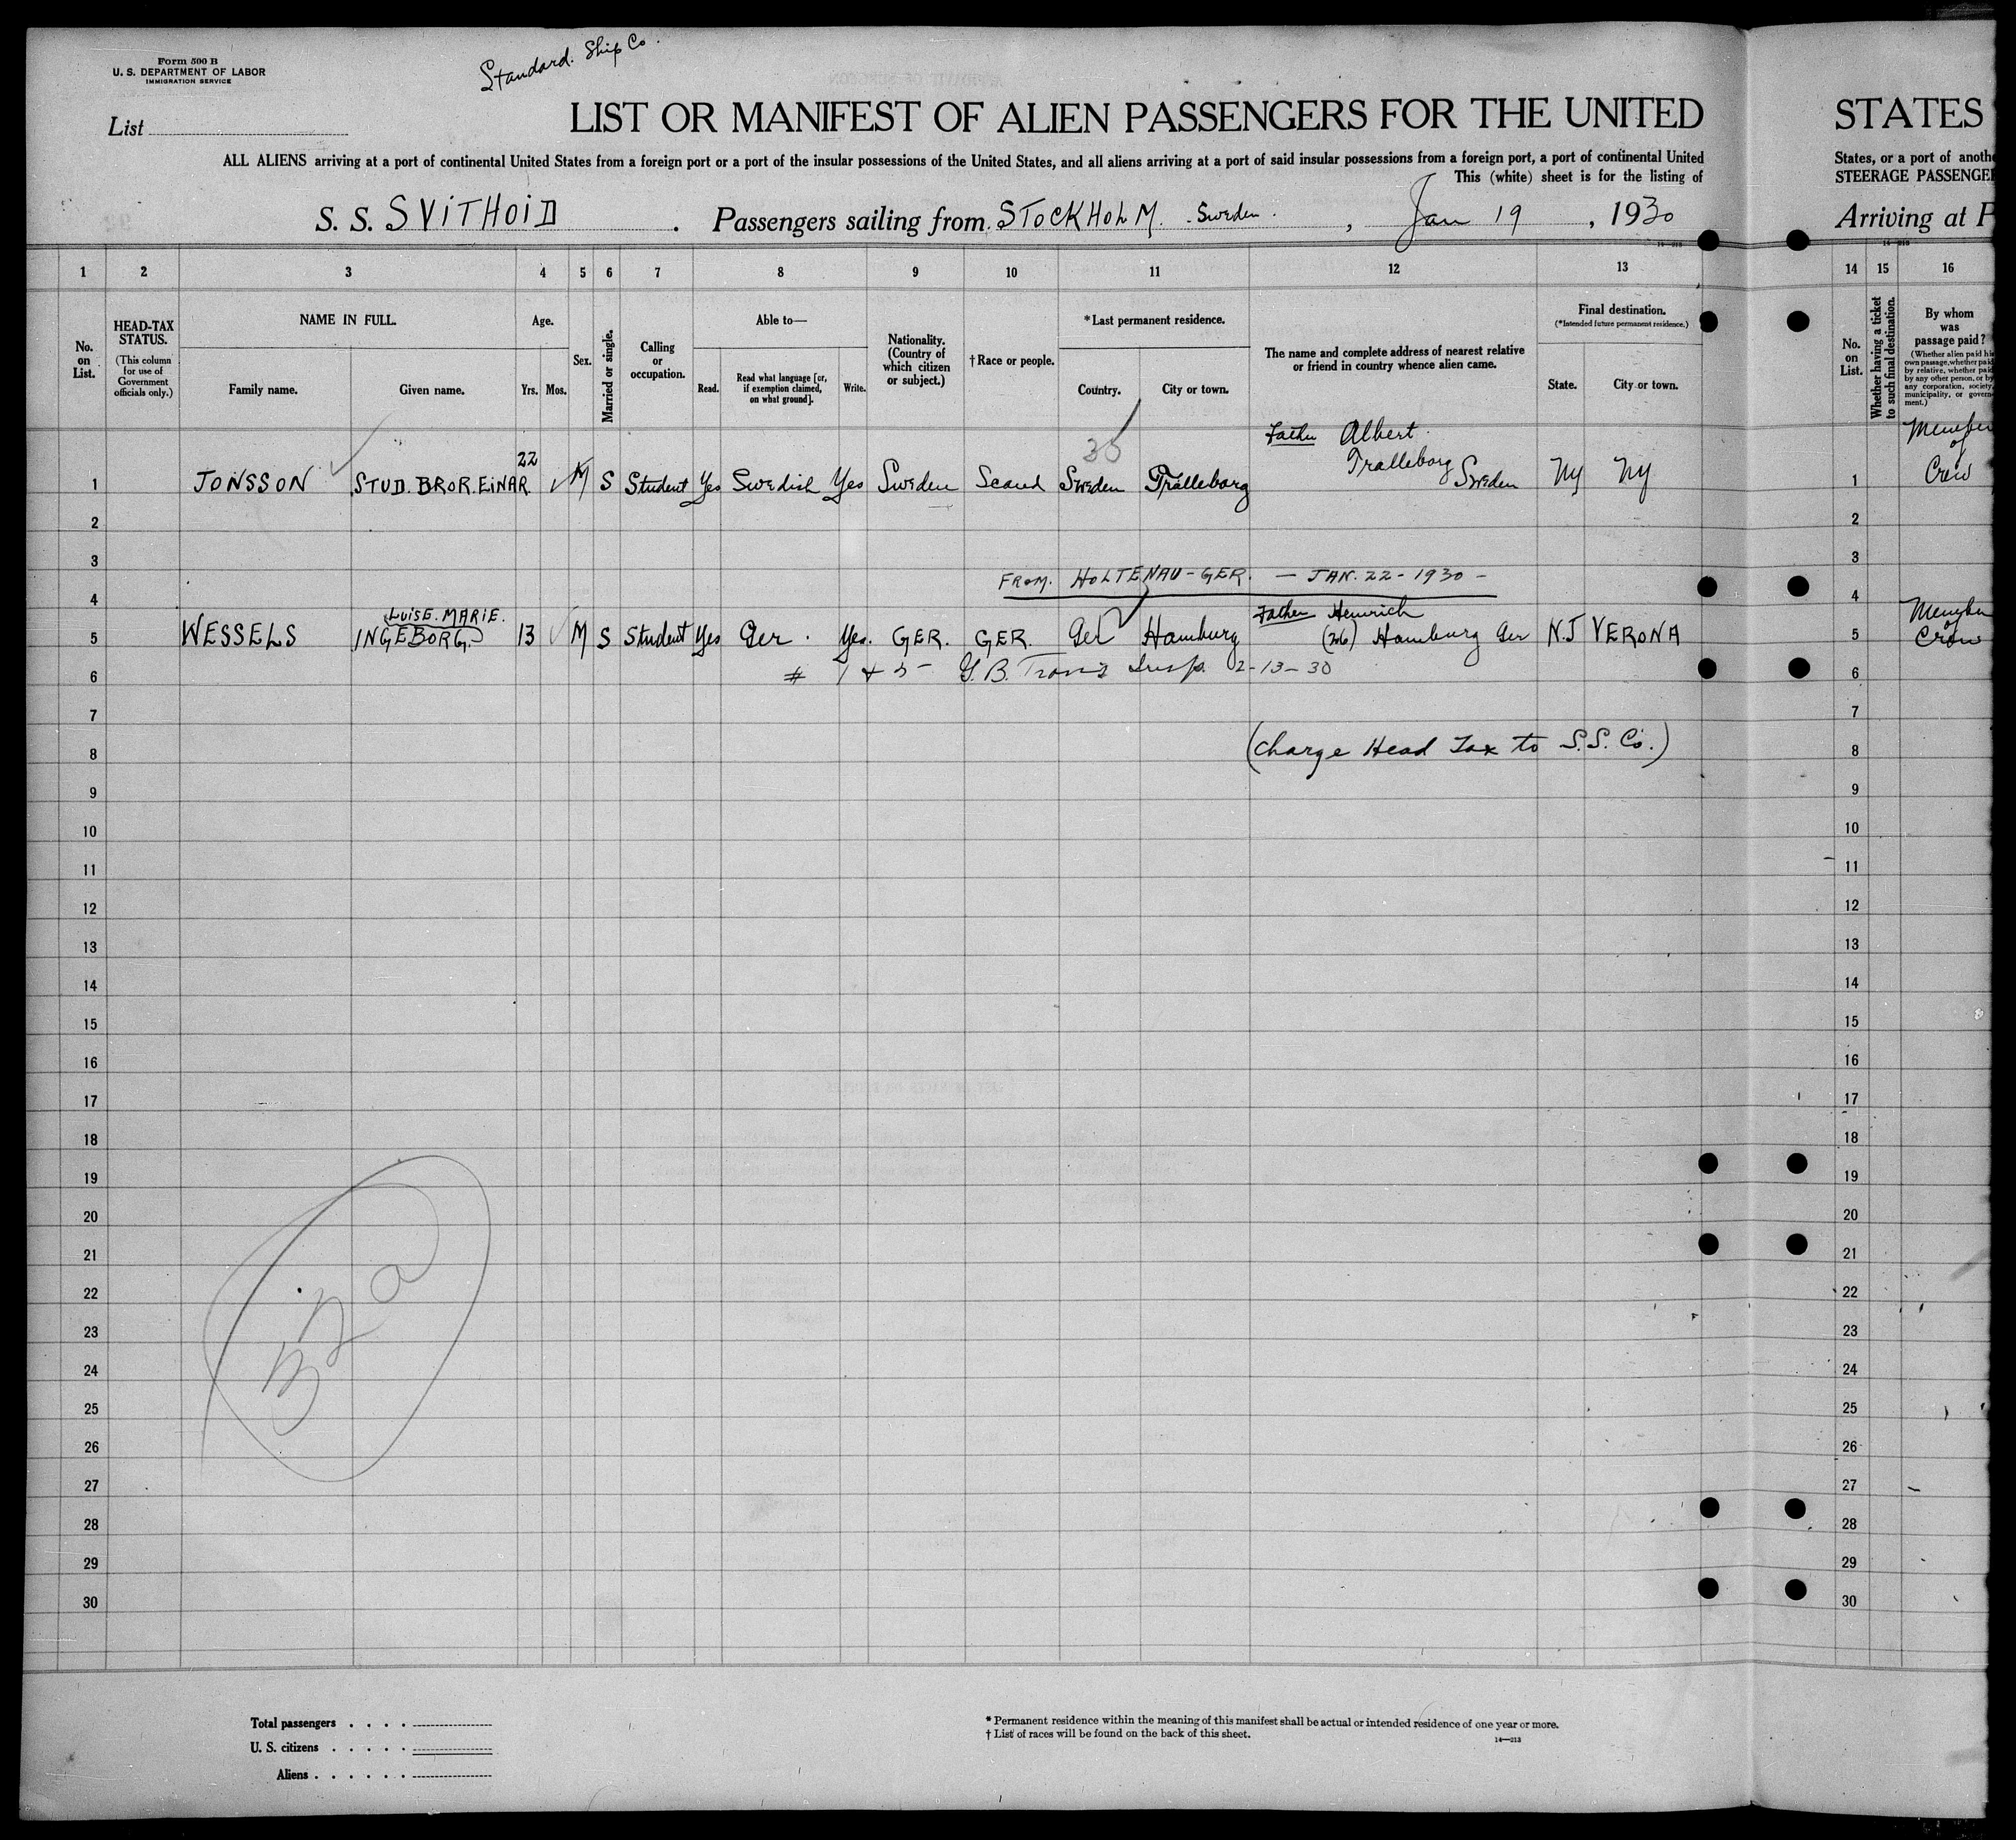 Form 500 B
U. S. DEPARTMENT OF LABOR
IMMIGRATION SERVICE
Standard. Ship Co.
List
LIST OR MANIFEST OF ALIEN PASSENGERS FOR THE UNITED
ALL ALIENS arriving at a port of continental United States from a foreign port or a port of the insular possessions of the United States, and all aliens arriving at a port of said insular possessions from a foreign port, a port of continental United
This (white) sheet is for the listing of
S. S. SVITHOID . Passengers sailing from STOCKHOLM. Sweden. , Jan 19 , 1930
14—213
STATES
States, or a port of anoth
STEERAGE PASSENGE
Arriving at P
14—213
1 2 3 4 5 6 7 8 9 10 11 12 13
14 15 16
No. on List.
HEAD-TAX STATUS.
(This column for use of Government officials only.)
NAME IN FULL.
Family name. Given name.
Age.
Yrs. Mos.
Sex.
Married or single.
Calling or occupation.
Able to—
Read. Read what language [or, if exemption claimed, on what ground]. Write.
Nationality. (Country of which citizen or subject.)
† Race or people.
* Last permanent residence.
Country. City or town.
The name and complete address of nearest relative or friend in country whence alien came.
Final destination.
(*Intended future permanent residence.)
State. City or town.
No. on List.
Whether having a ticket to such final destination.
By whom was passage paid?
(Whether alien paid hi
own passage, whether paid
by relative, whether paid
by any other person, or by
any corporation, society,
municipality, or govern-
ment.)
35
Father Albert.
1 JONSSON STUD. BROR. EINAR. 22 M S Student Yes Swedish Yes Sweden Scand Sweden Tralleborg Tralleborg Sweden NY NY
1 Member of Crew
2
3
FROM. HOLTENAU - GER. — JAN. 22 - 1930 —
4
LUISE. MARIE.
5 WESSELS INGEBORG. 13 M S Student Yes Ger. Yes. GER. GER. Ger Hamburg Father Heinrich Hamburg Ger N.J VERONA
5 Member of Crew
6 # 1 & 5 G.B. Insp. 2-13-30
7
8 (Charge Head Tax to S.S. Co.)
9
10
11
12
13
14
15
16
17
18
19
20
21
22
23
24
25
26
27
28
29
30
2
3
4
6
7
8
9
10
11
12
13
14
15
16
17
18
19
20
21
22
23
24
25
26
27
28
29
30
Total passengers . . . .
U. S. citizens . . . . .
Aliens . . . . . .
* Permanent residence within the meaning of this manifest shall be actual or intended residence of one year or more.
† List of races will be found on the back of this sheet.
14—213